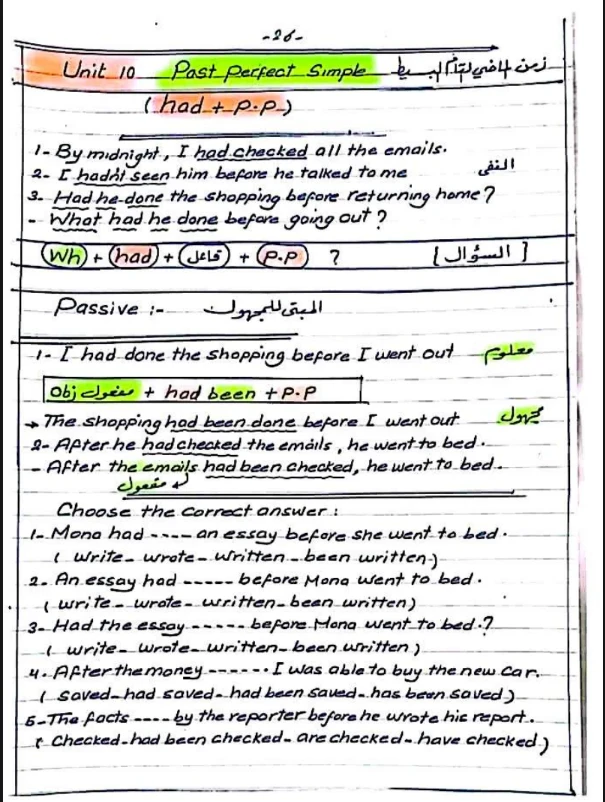 -26-
Unit 10 Past Perfect Simple زمن الماضي التام البسيط
( had + P.P )
1- By midnight, I had checked all the emails.
2- I hadn't seen him before he talked to me النفى
3- Had he done the shopping before returning home?
- What had he done before going out?
Wh + had + فاعل + P.P ? [ السؤال ]
Passive :- المبنى للمجهول
1- I had done the shopping before I went out معلوم
obj مفعول + had been + P.P
→ The shopping had been done before I went out مجهول
2- After he had checked the emails, he went to bed.
- After the emails had been checked, he went to bed.
مفعول
Choose the correct answer:
1- Mona had ---- an essay before she went to bed.
( write - wrote - written - been written )
2- An essay had ----- before Mona went to bed.
( write - wrote - written - been written )
3- Had the essay ----- before Mona went to bed.?
( write - wrote - written - been written )
4- After the money ------- I was able to buy the new car.
( saved - had saved - had been saved - has been saved )
5- The facts ---- by the reporter before he wrote his report.
( Checked - had been checked - are checked - have checked )